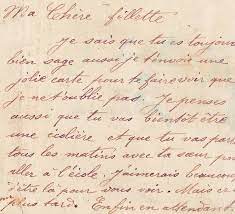 Ma Chère fillette
je sais que tu es toujours
bien sage aussi je t'envoie une
jolie carte pour te faire voir que
je ne t'oublie pas. Je pense
aussi que tu vas bientôt être
une écolière et que tu vas partir
tous les matins avec ta sœur pour
aller à l'école. J'aimerais beaucoup
d'être là pour vous voir. Mais ce
plus tard. Enfin en attendant